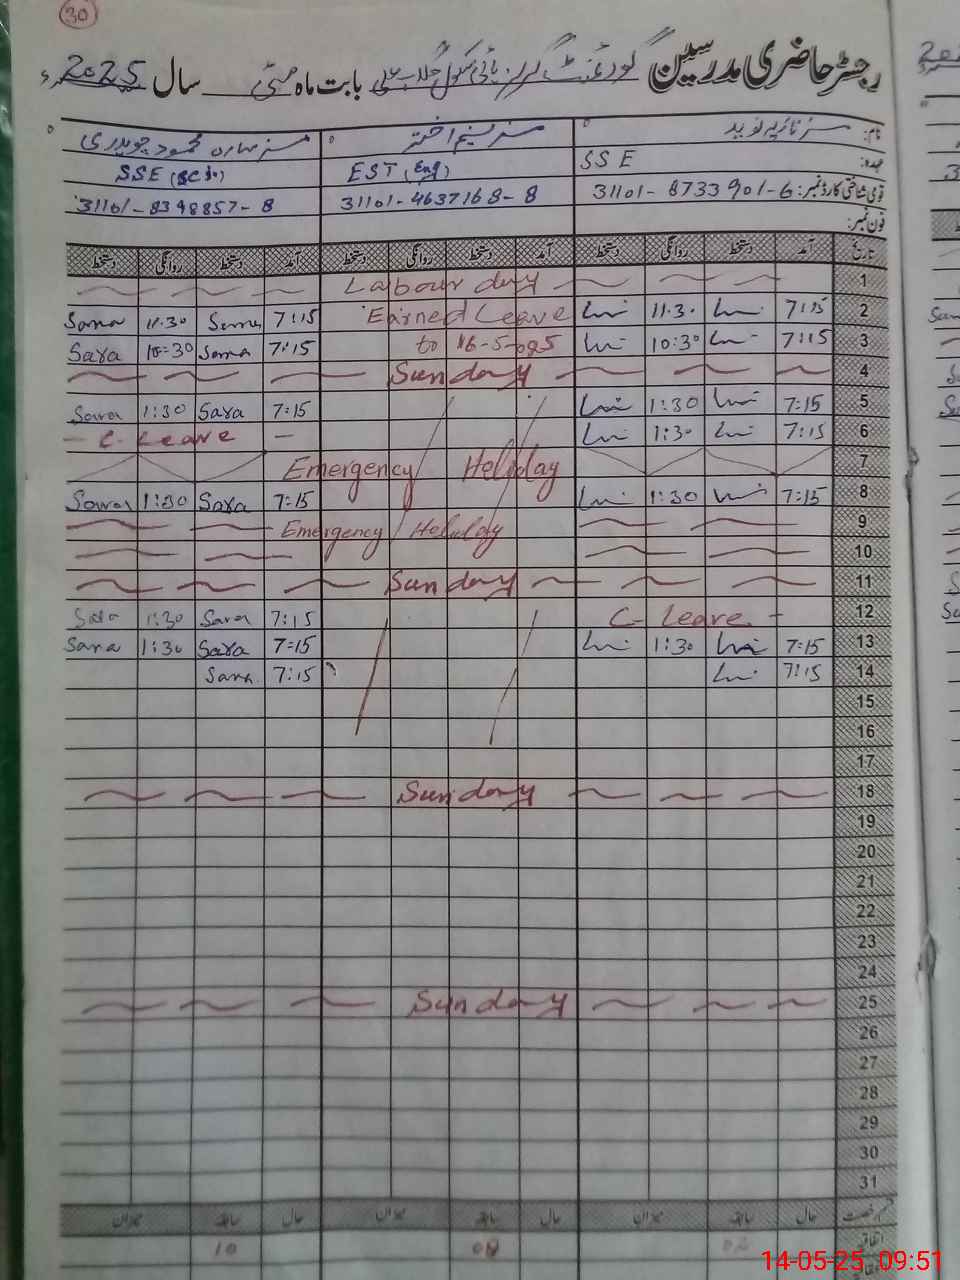 30
رجسٹر حاضری مدرسین گورنمنٹ گرلز ہائی سکول بابت ماہ مئی سال 2025ء
نام: مسز نازیہ نوید مسز نسیم اختر مسز سارہ محمود چوہدری
عہدہ: SSE EST (Eng) SSE (Sci)
قومی شناختی کارڈ نمبر: 31101-8733901-6 31101-4637168-8 31101-8398857-8
فون نمبر:
تاریخ آمد دستخط روانگی دستخط آمد دستخط روانگی دستخط آمد دستخط روانگی دستخط
Labour day 1
Sara 11.30 Sara 7:15 Earned Leave 11.30 7:15 2
Sara 10:30 Sara 7:15 to 16-5-025 10:30 7:15 3
Sunday 4
Sara 1:30 Sara 7:15 1:30 7:15 5
- C. Leave - 1:30 7:15 6
Emergency Holiday 7
Sara 1:30 Sara 7:15 1:30 7:15 8
Emergency Holiday 9
10
Sunday 11
Sara 1:30 Sara 7:15 C- Leave - 12
Sara 1:30 Sara 7:15 1:30 7:15 13
Sara 7:15 7:15 14
15
16
17
Sunday 18
19
20
21
22
23
24
Sunday 25
26
27
28
29
30
31
حال سابقہ میزان حال سابقہ میزان حال سابقہ میزان
اتفاقیہ
10
14-05-25 09:51